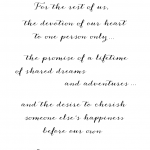 For the rest of us,
the devotion of our heart
to one person only...
the promise of a lifetime
of shared dreams
and adventures...
and the desire to cherish
someone else's happiness
before our own